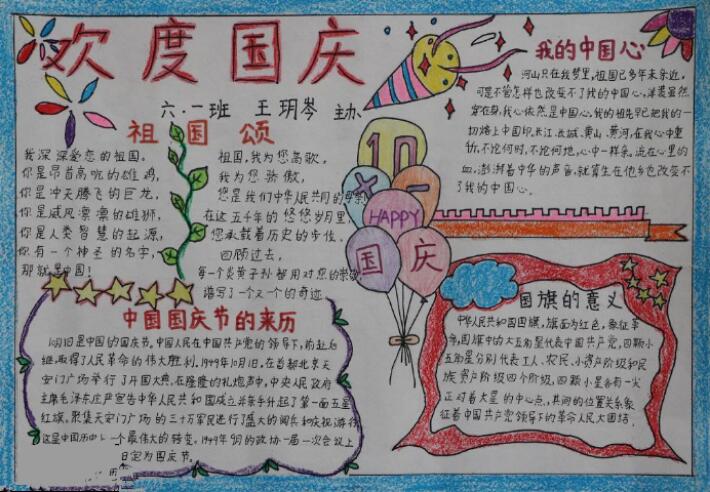 欢度国庆
六.一班 王玥岑 主办
祖国颂
我深深爱恋的祖国。
你是昂首高吭的雄鸡,
你是冲天腾飞的巨龙,
你是威风凛凛的雄狮,
你是人类智慧的起源,
你有一个神圣的名字,
那就是中国!
祖国,我为您高歌,
我为您骄傲,
您是我们中华人民共同的母亲
在这五千年的悠悠岁月里
您承载着历史的步伐、
回顾过去,
每一个炎黄子孙都用对您的崇敬
谱写了一个又一个的奇迹
10
X一
HAPPY
国庆
我的中国心
河山只在我梦里,祖国已多年未亲近,
可是不管怎样也改变不了我的中国心,洋装虽然
穿在身,我心依然是中国心,我的祖先早已把我的一
切烙上中国印,长江、长城、黄山、黄河,在我心中重
千斤,不论何时,不论何地,心中一样亲,流在心里的
血,澎湃着中华的声音,就算生在他乡也改变不
了我的中国心。
中国国庆节的来历
10月1日是中国的国庆节,中国人民在中国共产党的领导下,前赴后
继,取得了人民革命的伟大胜利.1949年10月1日,在首都北京天
安门广场举行了开国大典,在隆隆的礼炮声中,中央人民政府
主席毛泽东庄严宣告中华人民共和国成立并亲手升起了第一面五星
红旗,聚集天安门广场的三十万军民进行了盛大的阅兵和庆祝游行
这是中国历史上一个最伟大的转变,1949年9月的政协一届一次会议上
日定为国庆节。
国旗的意义
中华人民共和国国旗,旗面为红色,象征革
命,国旗中的大五角星代表中国共产党,四颗小
五角星分别代表工人、农民、小资产阶级和民
族资产阶级四个阶级,四颗小星各有一尖
正对着大星的中心点,其间的位置关系象
征着中国共产党领导下的革命人民大团结.